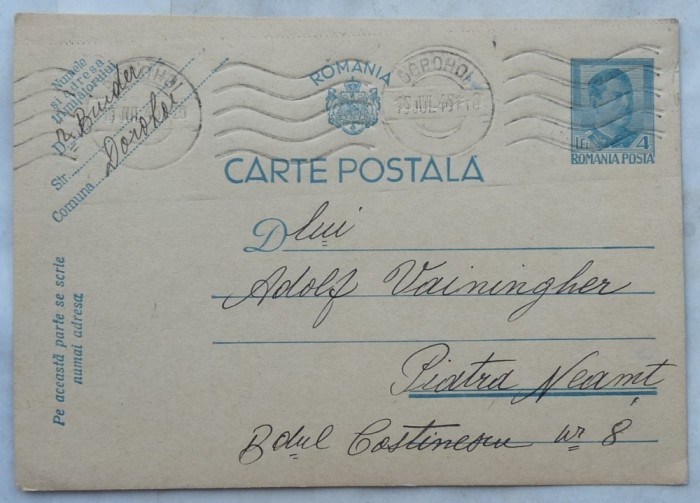 Numele
și adresa
trimițătorului
D. Binder
Str.
Comuna Dorohoi
ROMANIA
DOROHOI
LEI 4
ROMANIA POSTA
CARTE POSTALA
Dlui
Adolf Vainingher
Piatra Neamț
Bdul Costinescu nr 8
Pe această parte se scrie
numai adresa